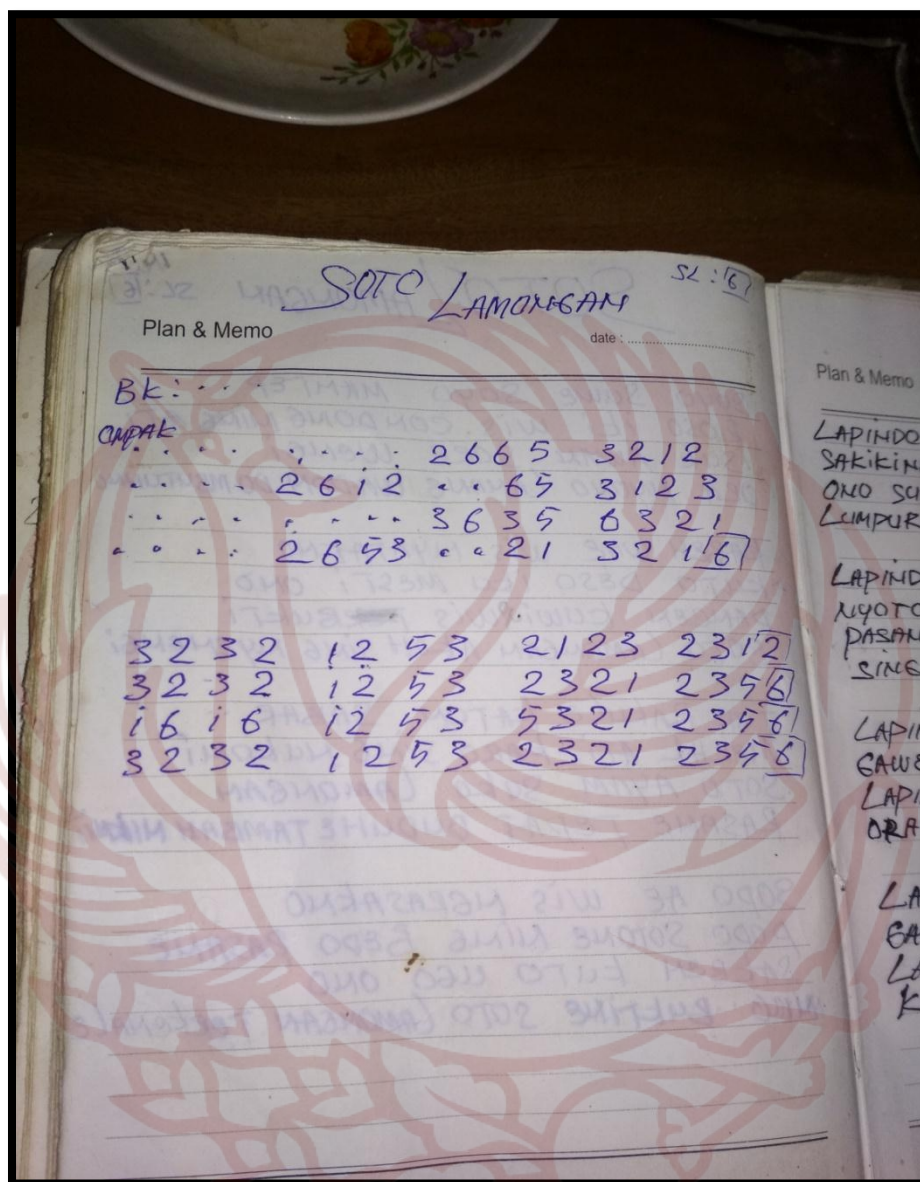 SOTO LAMONGAN SL : 6
Plan & Memo date : ..............................
BK : . . . .
OMPAK
. . . . . . . . 2665 3212
. . . . 2612 . . 65 3123
. . . . . . . . 3635 6321
. . . . 2653 . . 21 3216
3232 1253 2123 2312
3232 1253 2321 2356
i6i6 i253 5321 2356
3232 1253 2321 2356
Plan & Memo
LAPINDO
SAKIKIN
ONO SU
LUMPUR
LAPIND
NYOTO
PASAN
SING
LAPIN
GAWE
LAPI
ORA
LA
GA
LA
K